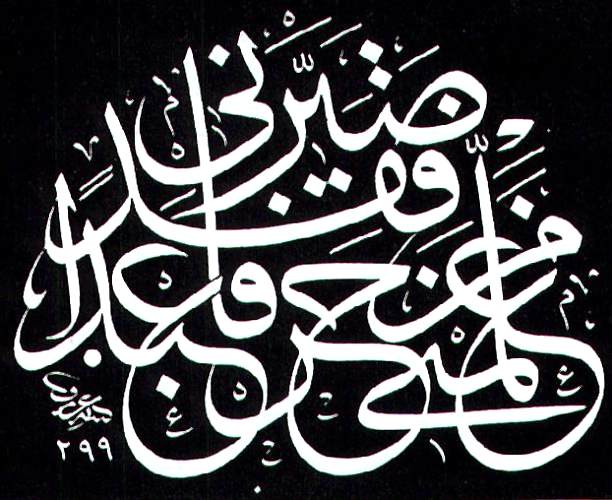 من علّمني حرفا فقد صيّرني عبدًا
٢٩٩